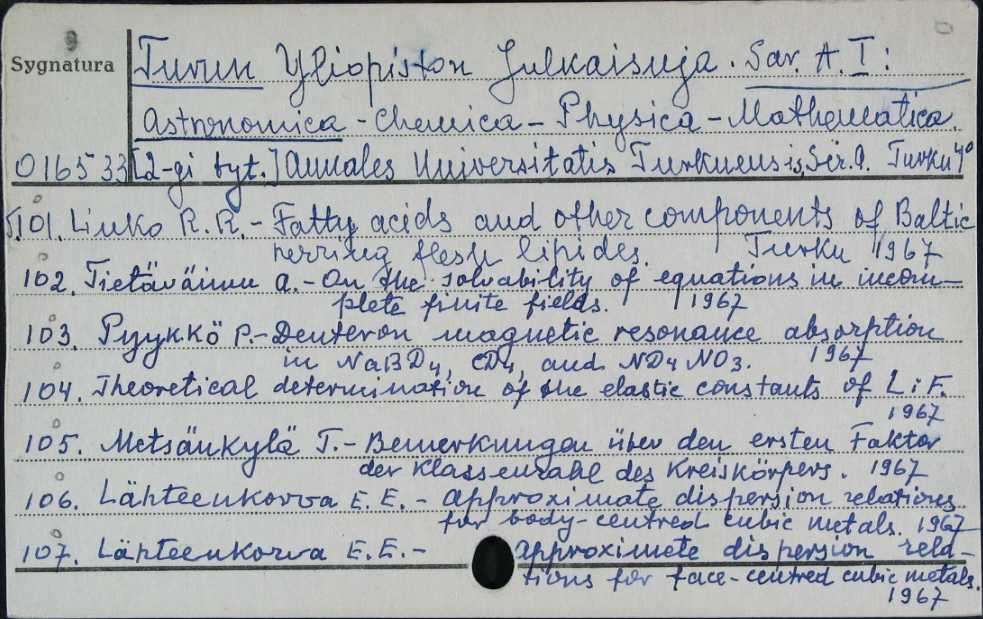 9
Sygnatura
Turun Yliopiston Julkaisuja. Sar. A. I:
Astronomica - Chemica - Physica - Mathematica.
016533 [2-gi tyt.] Annales Universitatis Turkuensis, Ser. A. Turku 4°
T.101. Linko R. R. - Fatty acids and other components of Baltic
herring flesh lipides. Turku 1967
102. Tietäväinen A. - On the solvability of equations in incom-
plete finite fields. 1967
103. Pyykkö P. - Deuteron magnetic resonance absorption
in NaBD4, CD4, and ND4 NO3. 1967
104. Theoretical determination of the elastic constants of LiF.
1967
105. Metsänkylä T. - Bemerkungen über den ersten Faktor
der Klassenzahl des Kreiskörpers. 1967
106. Lähteenkorva E. E. - Approximate dispersion relations
for body-centred cubic metals. 1967
107. Lähteenkorva E. E. - Approximete dispersion rela-
tions for face-centred cubic metals.
1967